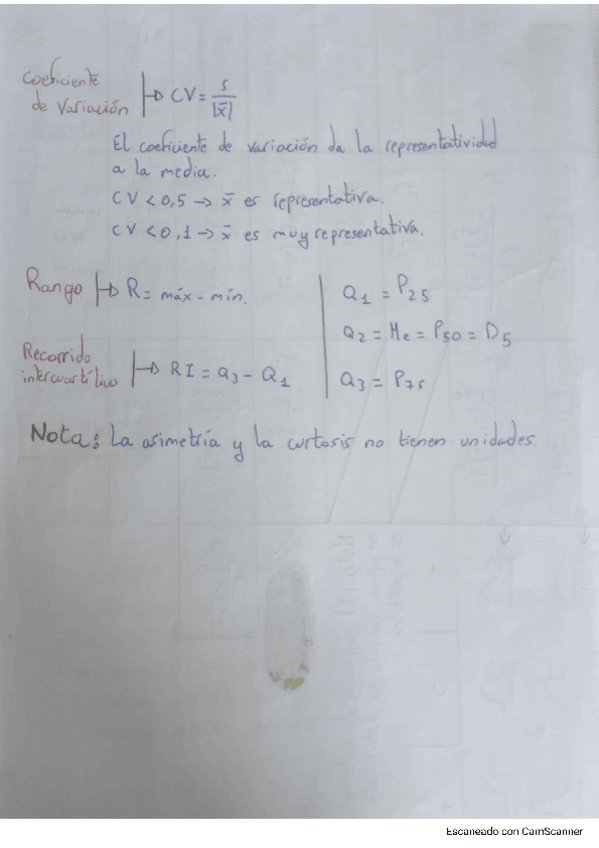 Coeficiente
de Variación |→ CV = s / |x̄|
El coeficiente de variación da la representatividad
a la media.
CV < 0,5 → x̄ es representativa.
CV < 0,1 → x̄ es muy representativa.
Rango |→ R = máx - mín.
Recorrido
intercuartílico |→ RI = Q3 - Q1
Q1 = P25
Q2 = Me = P50 = D5
Q3 = P75
Nota: La asimetría y la curtosis no tienen unidades.
Escaneado con CamScanner